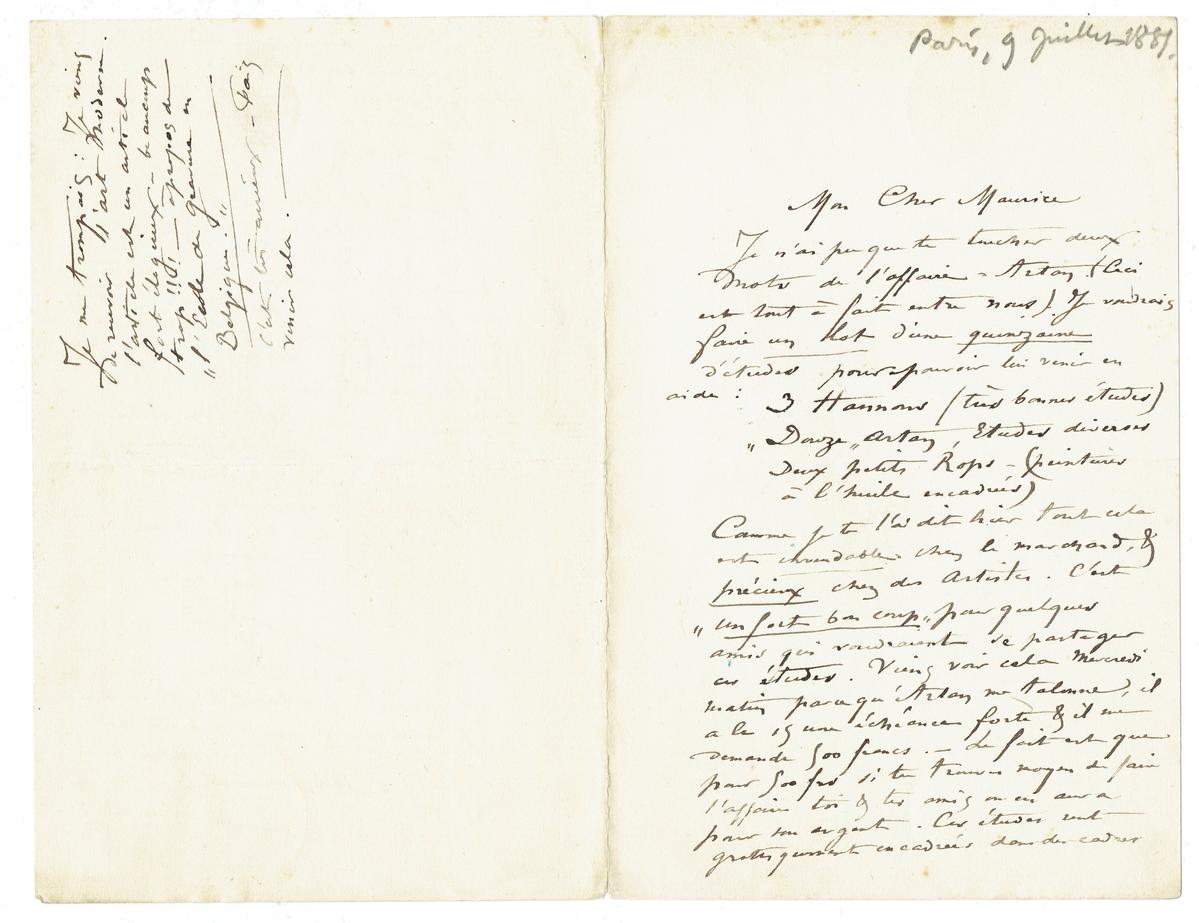 Paris, 9 Juillet 1881.
Mon Cher Maurice
Je n'ai pu que te toucher deux
mots de l'affaire - Artan (Ceci
est tout à fait entre nous). Je voudrais
faire un lot d'une quinzaine
d'études pour pouvoir lui venir en
aide :
3 Hannons (très bonnes études)
„ Douze „ Artan, Etudes diverses
Deux petits Rops - (peintures
à l'huile encadrées)
Comme je te l'ai dit hier tout cela
est invendable chez le marchand, &
précieux chez des Artistes. C'est
„ un fort bon coup „ pour quelques
amis qui voudraient se partager
ces études. Viens voir cela Mercredi
matin parce qu'Artan me talonne, il
a le 15 une échéance forte & il me
demande 500 francs. — Le fait est que
pour 500 frs si tu trouves moyen de faire
l'affaire toi & tes amis on en aura
pour son argent. Ces études sont
encadrées dans des cadres
Je me trompais : Je viens
de revoir „ l'art Moderne.
l'article est un article
fort élogieux - beaucoup
trop !!! — à propos de
„ l'Ecole de gravure en
Belgique. "
C'est très curieux - Fais
venir cela. —